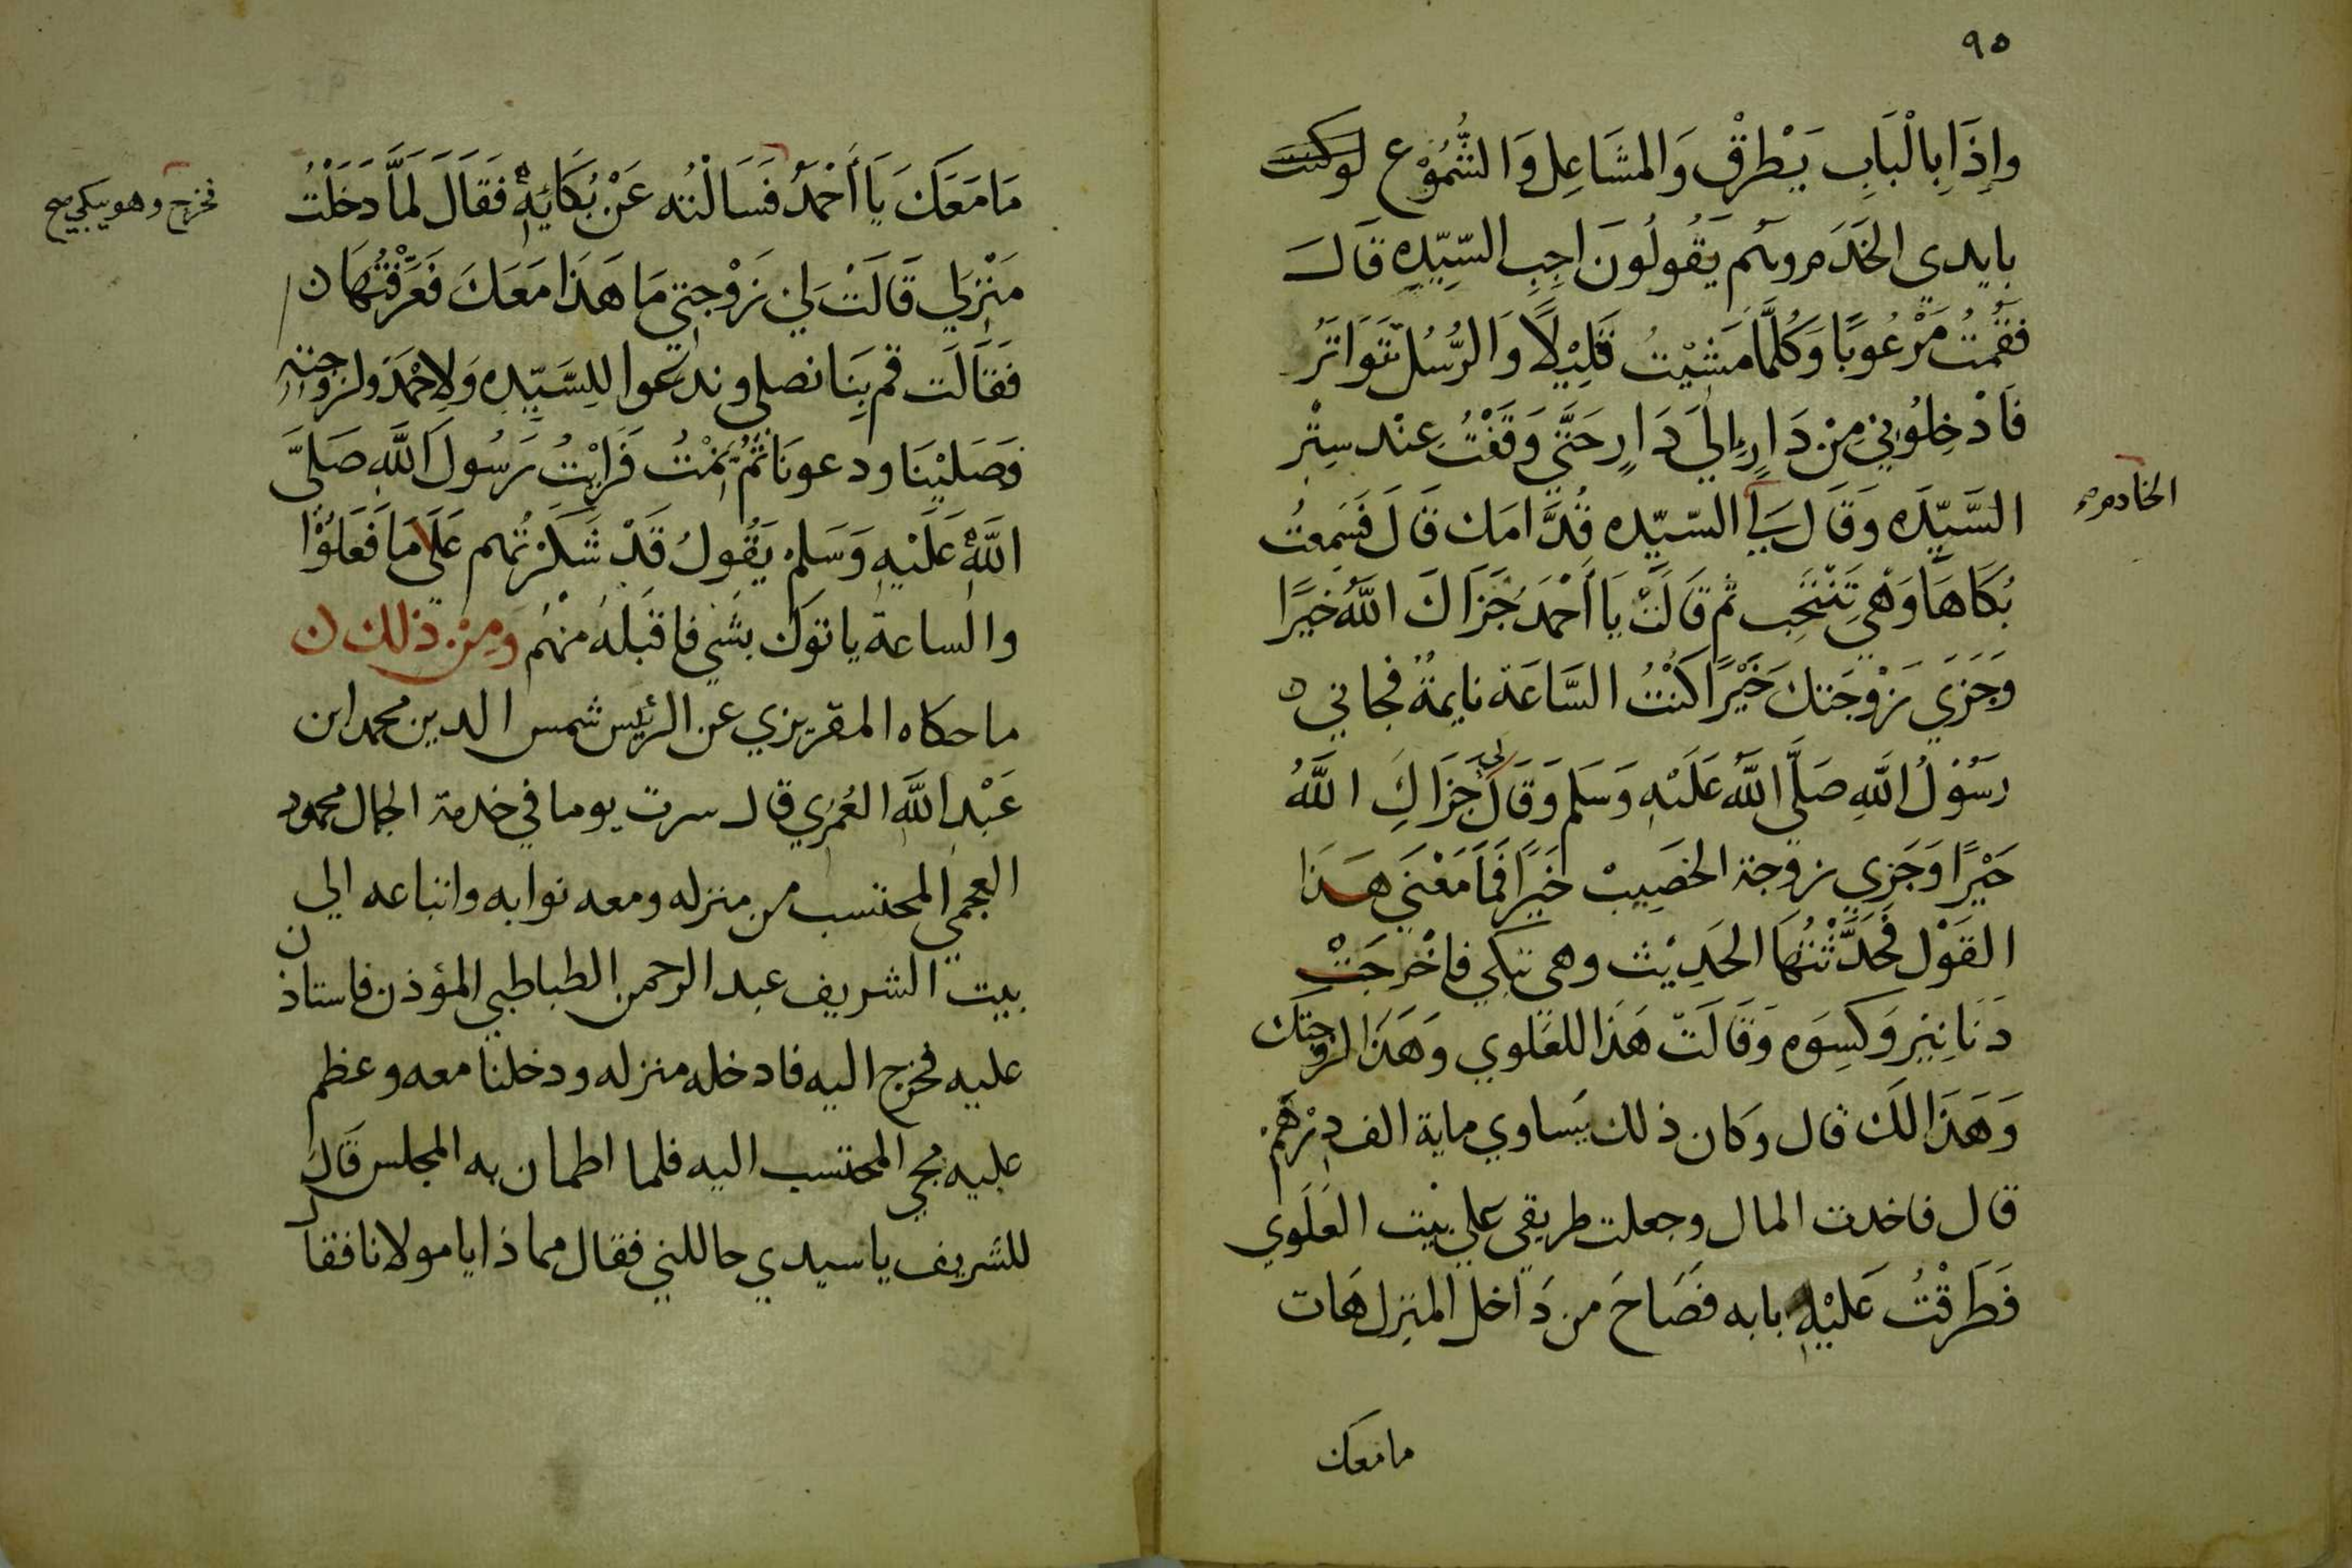 ٩٥
وإِذَا بِالْبَابِ يَطْرَقْ وَالمشَاعِل وَالشُّمُوْع
بايدى الخَدَم وهم يَقُولُونَ اجِبِ السَّيِّدِه قَالَ
فقُمتُ مَرْعُوبًا وَكُلَّمَا مَشَيْتُ قَلِيْلًا وَالرُّسُل تَتَوَاتَرُ
فَادْخِلُوني مِنْ دَارٍ إلى دَارٍ حَتَّى وَقَفْتُ عِنْد سِتْر
السَّيِّدَه وَقَالَ لي السّيّده قُدَّامَك قَالَ فَسَمِعتُ
الخادم
بُكَاهَا وَهْيَ تَنْتَحِب ثم قَالَتْ يَا أَحْمَدُ جَزَاكَ اللَّهُ خَيرًا
وَجَزَي زَوْجَتكَ خَيْرًا كُنْتُ السَّاعَة نايمةً فجاني
رَسُوْلُ اللَّهِ صَلَّى اللَّهُ عَلَيْهِ وَسَلم وَقَالَ لى جَزَاكِ اللَّهُ
خَيْرًا وَجَزي زوجة الخصَيِبْ خَيرًا فَمَا مَعْنَي هَذَا
القَوْل فَحَدَّثْتُهَا الحَدِيْث وهي تبكي فاخْرجَتْ
دَنَانِيْر وَكسِوَه وَقَالَتْ هَذا للعَلوي وَهَذَا لزوجتك
وَهَذَا لكَ قال وكان ذلك يَساوي ماية الف دِرْهَم
قال فاخدت المال وجعلت طريقي علي بَيْت العَلَوي
فَطَرقْتُ عَليْهِ بابه فصَاحَ من دَاخل المنزل هَات
مامعك
مَا مَعَكَ يَا أَحْمَدُ فَسَالْتُه عَنْ بُكَائِهِ فَقَالَ لَمَّا دَخَلْتُ
فخرج وهو يبكي صح
مَنْزِلي قَالَتْ لي زَوْجتي مَا هَذا مَعَكَ فَعَرَّفْتُهَا
فَقَالَت قم بِنَا نصلي وندعوا لِلسَّيِّدِه وَلاِحْمَدَ ولزوجته
فَصَلَيْنَا ودعونَا ثُمَّ نِمْتُ فَرَايْتُ رَسُولَ اللَّهِ صَلىَّ
اللَّهُ عَلَيْهِ وَسَلمْ يَقُولُ قَدْ شَكَرْتُهم عَلَى مَا فَعَلوْا
والساعة ياتوك بشَي فاقبَلهُ منْهُم ومِنْ ذلك
ما حكاه المقريزي عن الرئيس شمس الدين محمد ابن
عَبْد اللَّه العُمَرِي قال سرت يوما في خدمة الجمال محمود
العجمي المحتسب من منزله ومعه نوابه واتباعه الي
بيت الشريف عبد الرحمن الطباطبي المؤذن فاستاذن
عليه فخرج اليه فادخله منزله ودخلنا معه وعظم
عليه مجي المحتسب اليه فلما اطمان به المجلس قَالَ
للشريف يا سيدي حاللني فقال مما ذا يا مولانا فقال